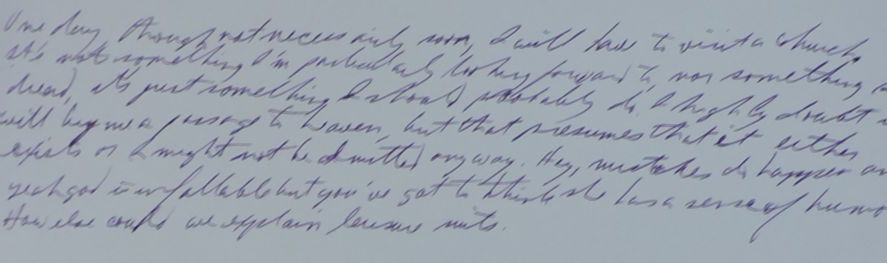 One day, though not necessarily soon, I will have to visit a church,
it's not something I'm particularly looking forward to, nor something
dread, it's just something I should probably do. I highly doubt
will buy me a passage to heaven, but that presumes that it either
exists or I might not be admitted anyway. Hey, mistakes do happen an
yeah god is infallable but you've got to think she has a sense of humo
How else could we explain leisure suits.